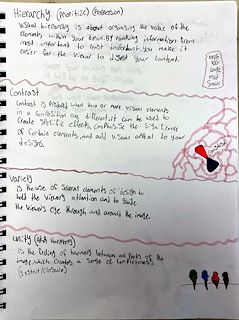 Hierarchy (prioritize) (Progression)
Visual hierarchy is about organizing the value of the
elements within your design. By ranking information from
most important to least important, you make it
easier for the viewer to digest your content.
Contrast
Contrast is produced when two or more visual elements
in a composition are different. It can be used to
create specific effects, emphasize the significance
of certain elements, and add visual appeal to your
designs.
Variety
is the use of several elements of design to
hold the viewers attention and to guide
the viewers eye through and around the image.
Unity (AKA Harmony)
is the feeling of harmony between all parts of the
image, which creates a sense of completeness
(gestalt/closure)